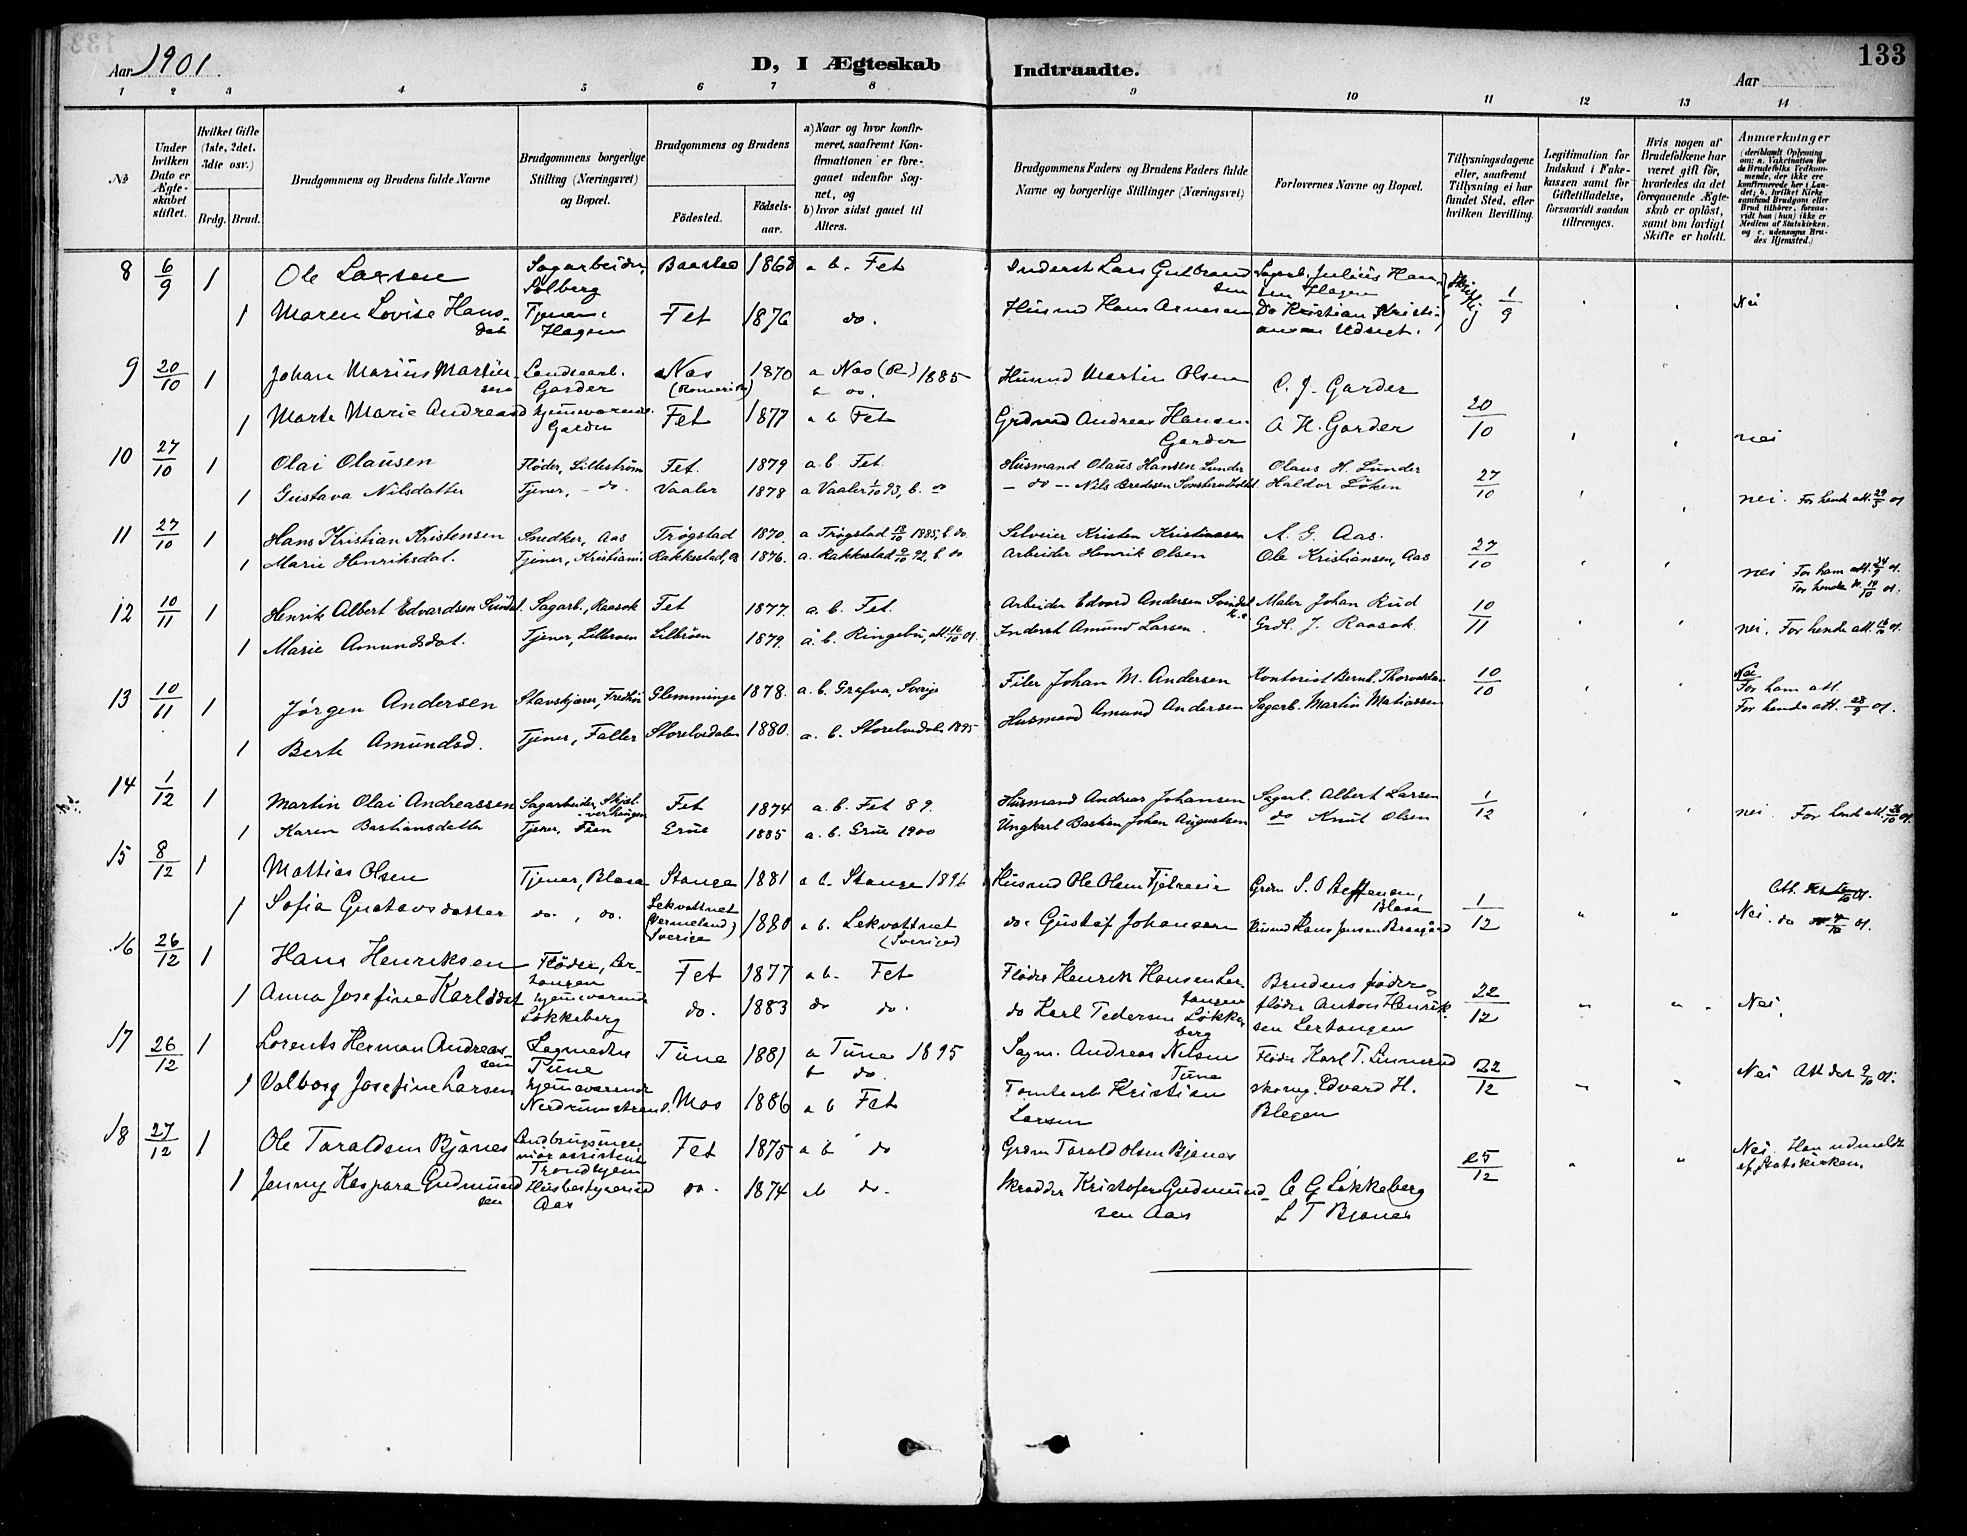 Aar 1901.
D, I Ægteskab Indtraadte.
133
Aar
1 2 3 4 5 6 7 8 9 10 11 12 13 14
No
Under hvilken Dato er Ægteskabet stiftet.
Hvilket Gifte (1ste, 2det, 3die osv.)
Brdg. Brud.
Brudgommens og Brudens fulde Navne
Brudgommens borgerlige Stilling (Næringsvei) og Bopæl.
Brudgommens og Brudens
Fødested.
Fødselsaar.
a) Naar og hvor konfirmeret, saafremt Konfirmationen er foregaaet udenfor Sognet, og
b) hvor sidst gaaet til Alters.
Brudgommens Faders og Brudens Faders fulde Navne og borgerlige Stillinger (Næringsvei)
Forlovernes Navne og Bopæl.
Tillysningsdagene eller, saafremt Tillysning ei har fundet Sted, efter hvilken Bevilling.
Legitimation for Indskud i Enkekassen samt for Giftetilladelse, forsaavidt saadan tiltrænges.
Hvis nogen af Brudefolkene har været gift før, hvorledes da det foregaaende Ægteskab er opløst, samt om lovligt Skifte er holdt.
Anmærkninger
(deriblandt Oplysning om: a. Vakcination for de Brudefolks Vedkommende, der ikke ere konfirmerede her i Landet; b. hvilket Kirkesamfund Brudgom eller Brud tilhører, forsaavidt han (hun) ikke er Medlem af Statskirken, og c. udensogns Brudes Hjemsted.)
8 6/9 1 Ole Larsen Sagarbeider, Solberg Baastad 1868 a b. Fet Inderst Lars Gulbrandsen Sagarb. Julius Hansen Hagen 1/9
1 Maren Lovise Hansdat Tjener, Hagen Fet 1876 do. Husmd Hans Arnesen Do Kristian Kristiansen Udsigt. Nei
9 20/10 1 Johan Marius Martinsen Landearb. Garder Nas (Romerik) 1870 a Nas (R) 1885 b do. Husmd Martin Olsen C. J. Garder
1 Marte Marie Andreasd hjemværende Garder Fet 1877 a b Fet Grdmd Andreas Hansen Garder A H. Garder 20/10 nei
10 27/10 1 Olai Olausen Fløder, Lillestrøm Fet. 1879 a. b. Fet. Husmand Olaus Hansen Lunder Olaus H. Lunder 27/10
1 Gustava Nilsdatter Tjener, - do. Vaaler 1878 a Vaaler 1/10 93, b. do - do - Nils Bredesen Haldor Løken nei. For hende att. 29/5 01
11 27/10 1 Hans Kristian Kristensen Snedker, Aas Trøgstad 1870. a Trøgstad 1885, b. do Selveier Kristen Kristiansen A. G. Aas.
1 Marie Henriksdat. Tjener, Kristiania Rakkestad, 1876. a. Rakkestad 92, b. do Arbeider Henrik Olsen Ole Kristiansen, Aas 27/10 nei For ham att. 01.
For hende 01.
12 10/11 1 Henrik Albert Edvardsen Svindal. Sagarb., Raasok Fet 1877. a. b. Fet. Arbeider Edvard Andersen Svindal Maler Johan Rud 10/11
1 Marie Amundsdat. Tjener, Lilleroen Lilleøen 1879. a. b. Ringebu, att 01. Inderst Amund Larsen. Grdl. J. Raasok nei. For hende att. 01.
13 10/11 1 Jørgen Andersen Glemminge 1878. a. b. Grafva, Sverige Filer Johan M. Andersen Kontorist Bernt. Thorvaldsen 10/10 Nei For ham att.
For hende att. 23/9 01.
1 Berte Amundsd. Tjener, Faller Storelvedalen 1880. a. b. Storelvedalen 1895 Husmand Amund Andersen Sagarb. Martin Matiassen
14 1/12 1 Martin Olai Andreassen Sagarbeider, Fet 1874 a. b. Fet 89. Husmand Andreas Johansen Sagarb. Albert Larsen 1/12
1 Karen Bastiansdatter Tjener, Fien Grue 1885 a. b. Grue 1900 Ungkarl Bastian Johan Augustsen do Knut Olsen nei. For hende att. 01.
15 8/12 1 Mattias Olsen Tjener, Blasa Stange 1881 a b. Stange 1896 Husmd Ole Olsen Grdm S. O Steffensen, Blasa Att. 01.
1 Sofia Gustavsdatter do., do. Lekvattnet (Vermeland) Sverige 1880 a b. Lekvattnet (Sverige) do. Gustaf Johansson Husmd Hans Jensen 1/12 Nei. do 01.
16 26/12 1 Hans Henriksen Fløder, Lertangen Fet 1877 a b. Fet Fløder Henrik Hansen Lertangen Brudens fader og
1 Anna Josefine Karlsdat hjemværende Løkkeberg do. 1883 do do. do Karl Pedersen Løkkeberg fløder Anton Henriksen Lertangen 22/12 Nei.
17 26/12 1 Lorents Herman Andreassen Sagmester Tune Tune 1881 a Tune 1895 b do. Sagm. Andreas Nilsen Tune Fløder Karl T. Linnerud 22/12
1 Valborg Josefine Larsen hjemværende Nerdrumstrand. Mos 1886 a b Fet Tomtearb Kristian Larsen skomg. Edvard H. Blegen Nei Att der 9/10 01.
18 27/12 1 Ole Taraldsen Bjanes Landbrugsingeniør assistent Trondhjem Fet 1875 a b do Grdm Tarald Olsen Bjanes 25/12 Nei. Han udmeldt af Statskirken.
1 Jenny Kaspara Gudmundsen Husbestyrerind Aas do. 1874 ab do. Skrædder Kristofer Gudmundsen Aas C G Løkkeberg
L T Bjanes